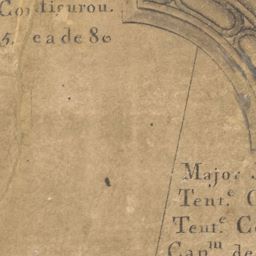 Configurou.
5. e a de 80
Major
Tent.e C
Tent.e Co
Cap.m de